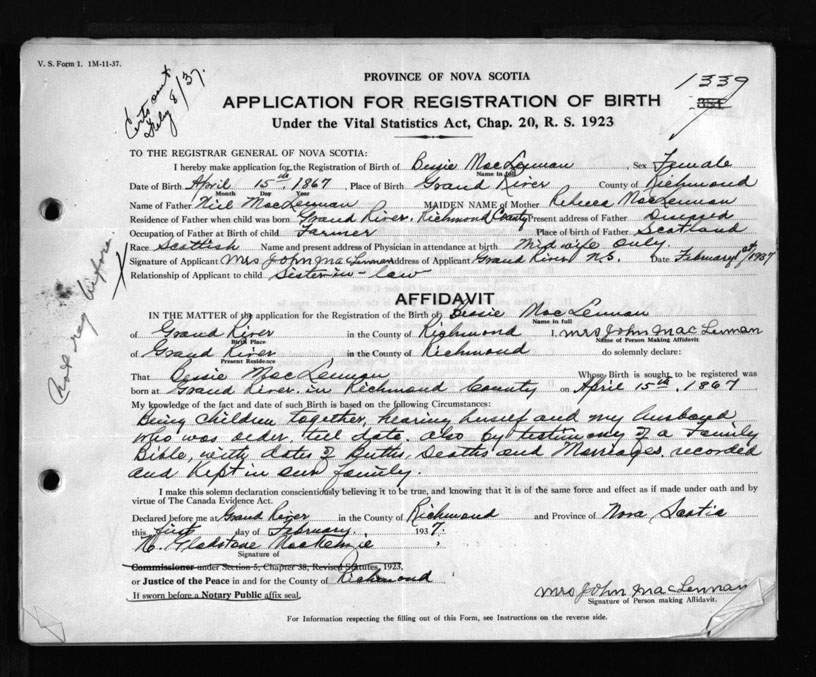 V. S. Form 1. 1M-11-37.
PROVINCE OF NOVA SCOTIA
1339
APPLICATION FOR REGISTRATION OF BIRTH
Under the Vital Statistics Act, Chap. 20, R. S. 1923
Certs sent
Feby 8/37.
TO THE REGISTRAR GENERAL OF NOVA SCOTIA:
I hereby make application for the Registration of Birth of Bessie MacLennan, Sex Female
Name in full
Date of Birth April 15th 1867, Place of Birth Grand River County of Richmond
Month Day Year
Name of Father Niel MacLennan MAIDEN NAME of Mother Rebecca MacLennan
Residence of Father when child was born Grand River, Richmond County Present address of Father
Occupation of Father at Birth of child Farmer Place of birth of Father Scotland
Race Scottish Name and present address of Physician in attendance at birth Midwife Only.
Signature of Applicant Mrs John MacLennan Address of Applicant Grand River N.S. Date February 1st 1937
Relationship of Applicant to child Sister-in-law
Not reg before
X
AFFIDAVIT
IN THE MATTER of the application for the Registration of the Birth of Bessie MacLennan
Name in full
of Grand River in the County of Richmond I, Mrs John MacLennan
Birth Place Name of Person Making Affidavit
of Grand River in the County of Richmond do solemnly declare:
Present Residence
That Bessie MacLennan Whose Birth is sought to be registered was
born at Grand River, in Richmond County on April 15th, 1867
My knowledge of the fact and date of such Birth is based on the following Circumstances:
Being children together, hearing and my husband
who was older, tell date. also by testimony of a Family
Bible, with dates of Births, Deaths and Marriages, recorded
and Kept in our family.
I make this solemn declaration conscientiously believing it to be true, and knowing that it is of the same force and effect as if made under oath and by
virtue of The Canada Evidence Act.
Declared before me at Grand River in the County of Richmond and Province of Nova Scotia
this first day of February. 1937.
N. Gladstone MacKenzie
Signature of
Commissioner under Section 5, Chapter 38, Revised Statutes, 1923,
or Justice of the Peace in and for the County of Richmond
If sworn before a Notary Public affix seal.
Mrs John MacLennan
Signature of Person making Affidavit.
For Information respecting the filling out of this Form, see Instructions on the reverse side.